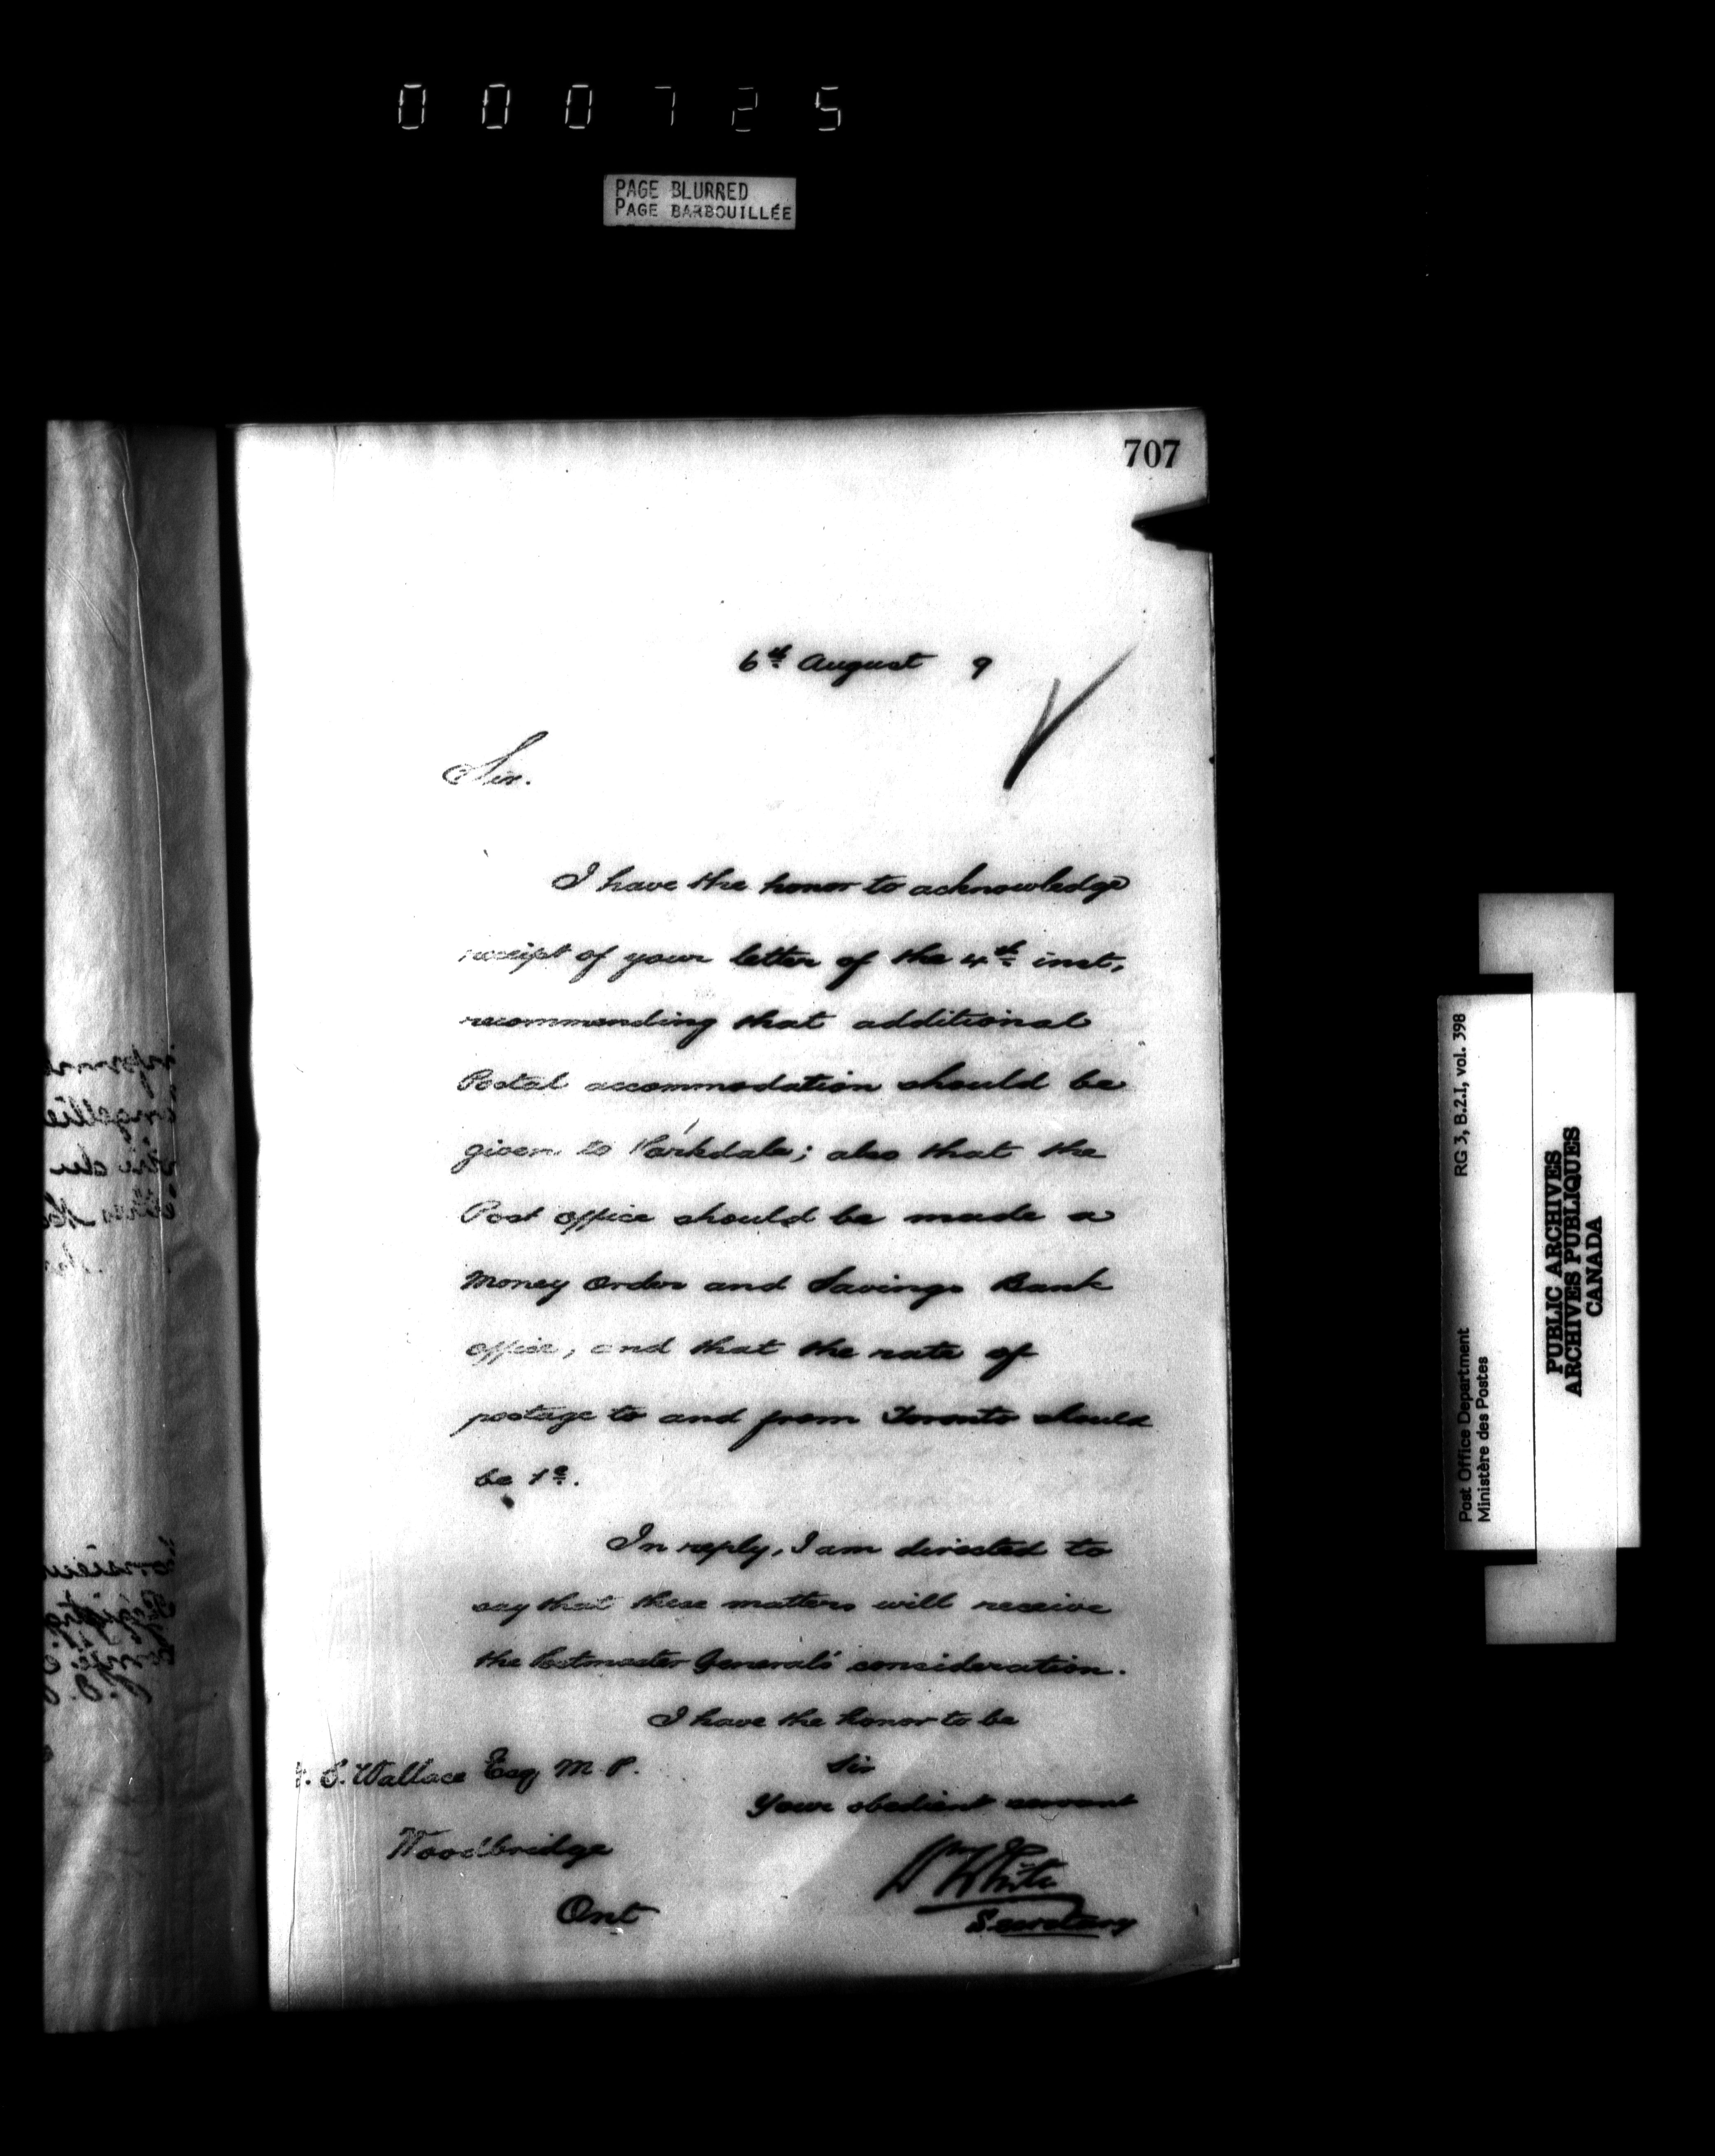 000725
PAGE BLURRED
PAGE BARBOUILLÉE
707
6th August 9
Sir.
I have the honor to acknowledge
receipt of your letter of the 4th inst,
recommending that additional
Postal accommodation should be
given to Parkdale; also that the
Post office should be made a
Money Order and Savings Bank
office, and that the rate of
postage to and from Toronto should
be 1c.
In reply, I am directed to
say that these matters will receive
the Postmaster General's consideration.
I have the honor to be
Sir
Your obedient servant
Wm White
Secretary
S. Wallace Esq M.P.
Woodbridge
Ont
RG 3, B.2.I, vol. 398
Post Office Department
Ministère des Postes
PUBLIC ARCHIVES
ARCHIVES PUBLIQUES
CANADA